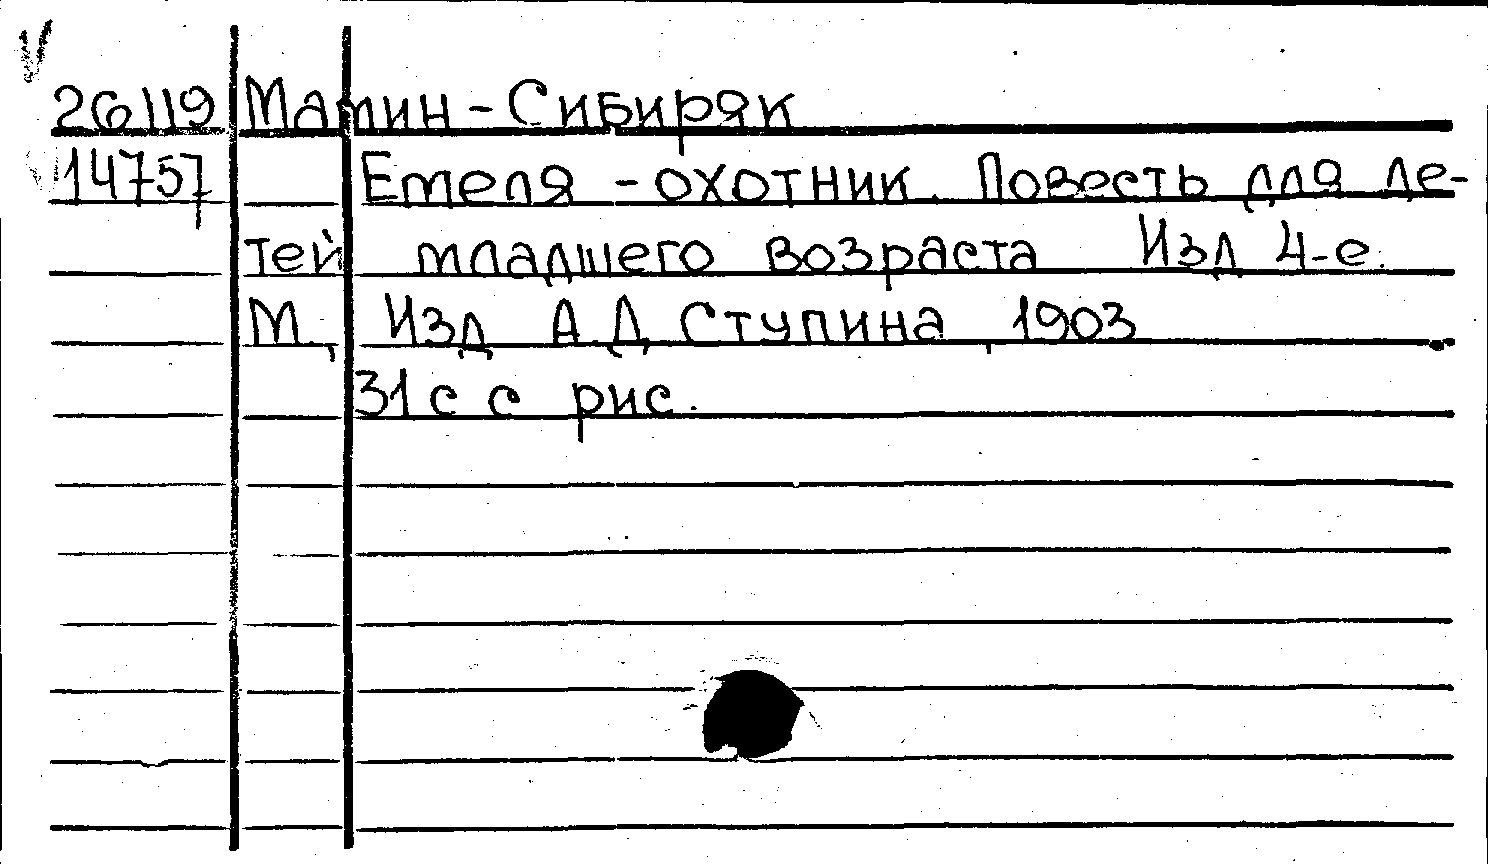 26119 Мамин-Сибиряк
14757 Емеля-охотник. Повесть для де-
тей младшего возраста Изд 4-е.
М., Изд А Д Ступина, 1903
31 с с рис.